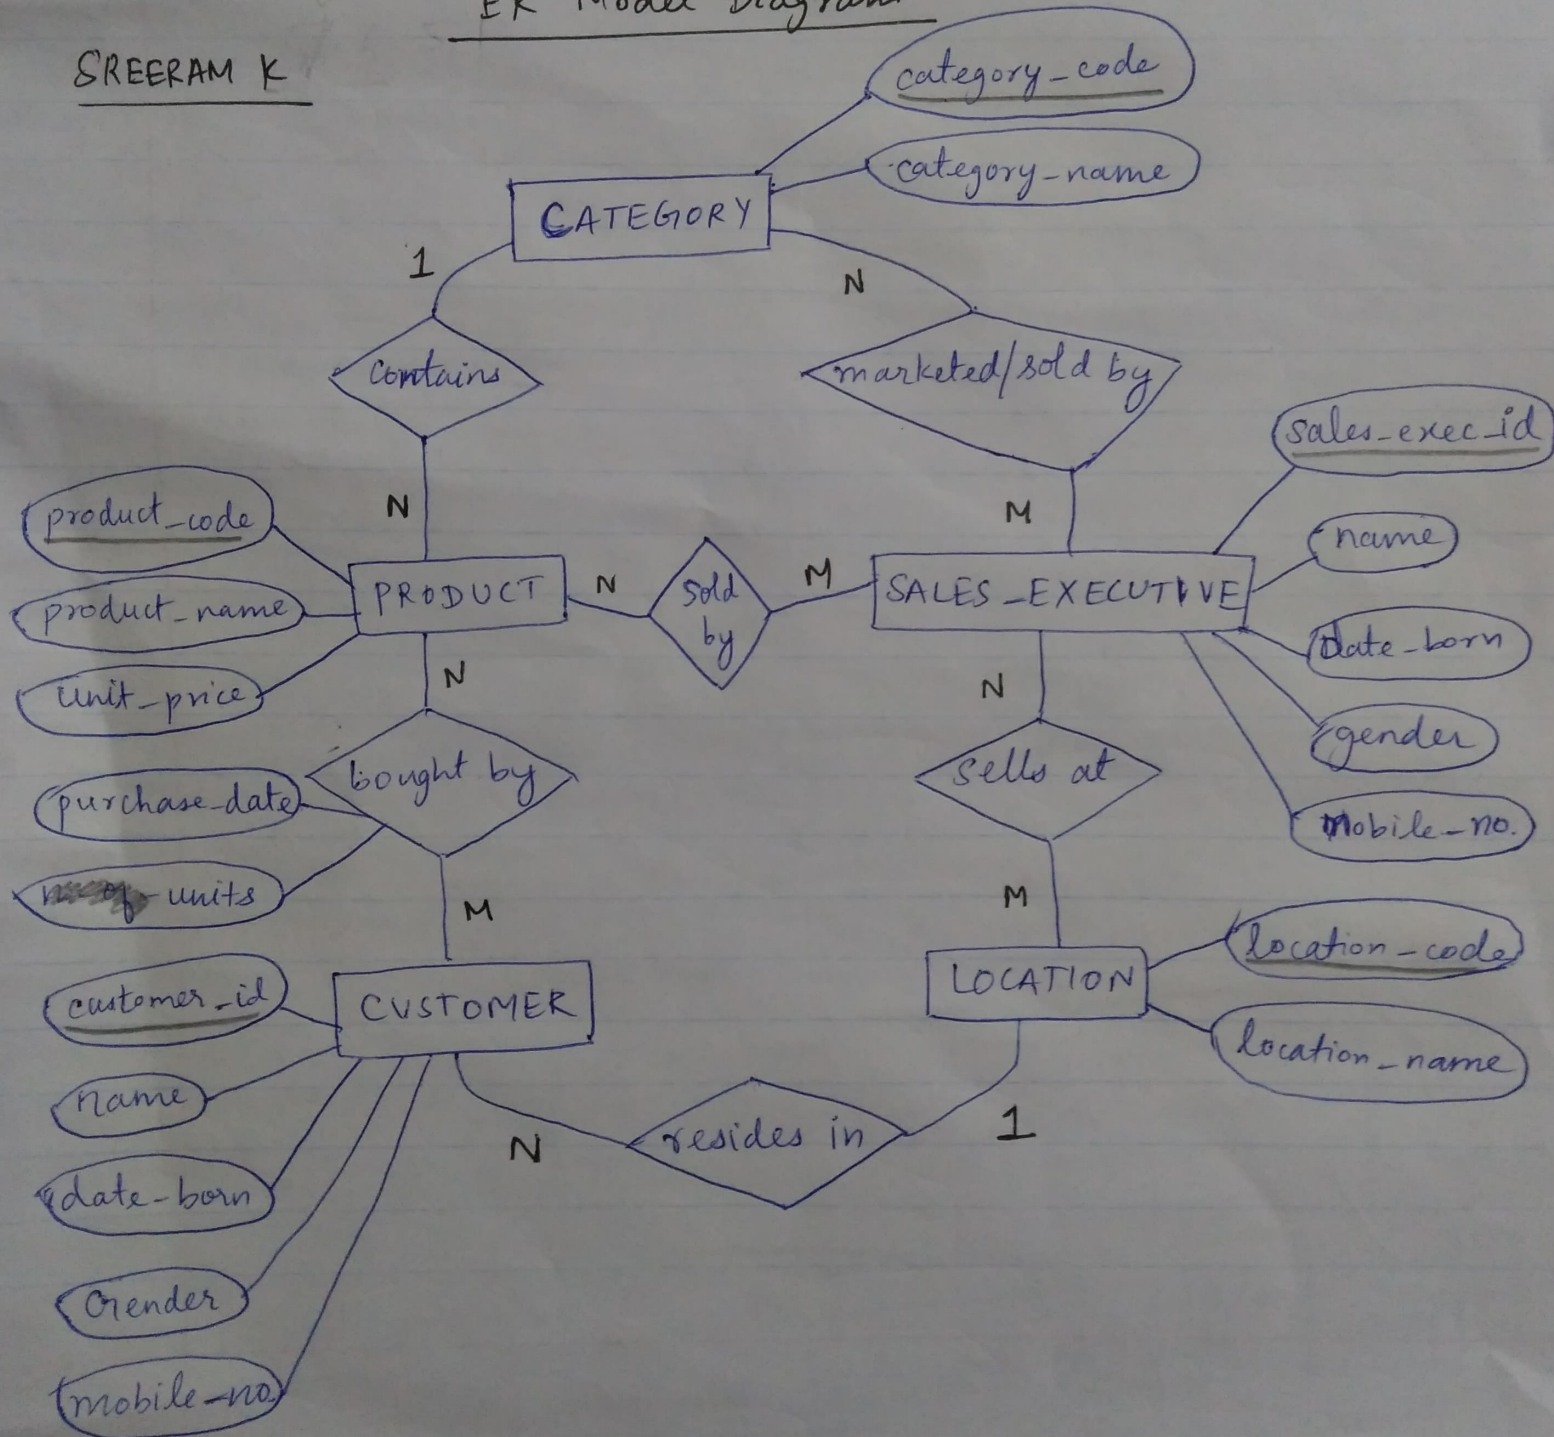 ER Model Diagram
SREERAM K
category_code
category_name
CATEGORY
1
N
Contains
marketed/sold by
sales_exec_id
N
M
product_code
name
PRODUCT
N
sold
by
M
SALES_EXECUTIVE
product_name
date_born
unit_price
N
N
gender
bought by
sells at
purchase_date
mobile_no.
units
M
M
location_code
customer_id
CUSTOMER
LOCATION
location_name
name
N
resides in
1
date_born
Gender
mobile_no.